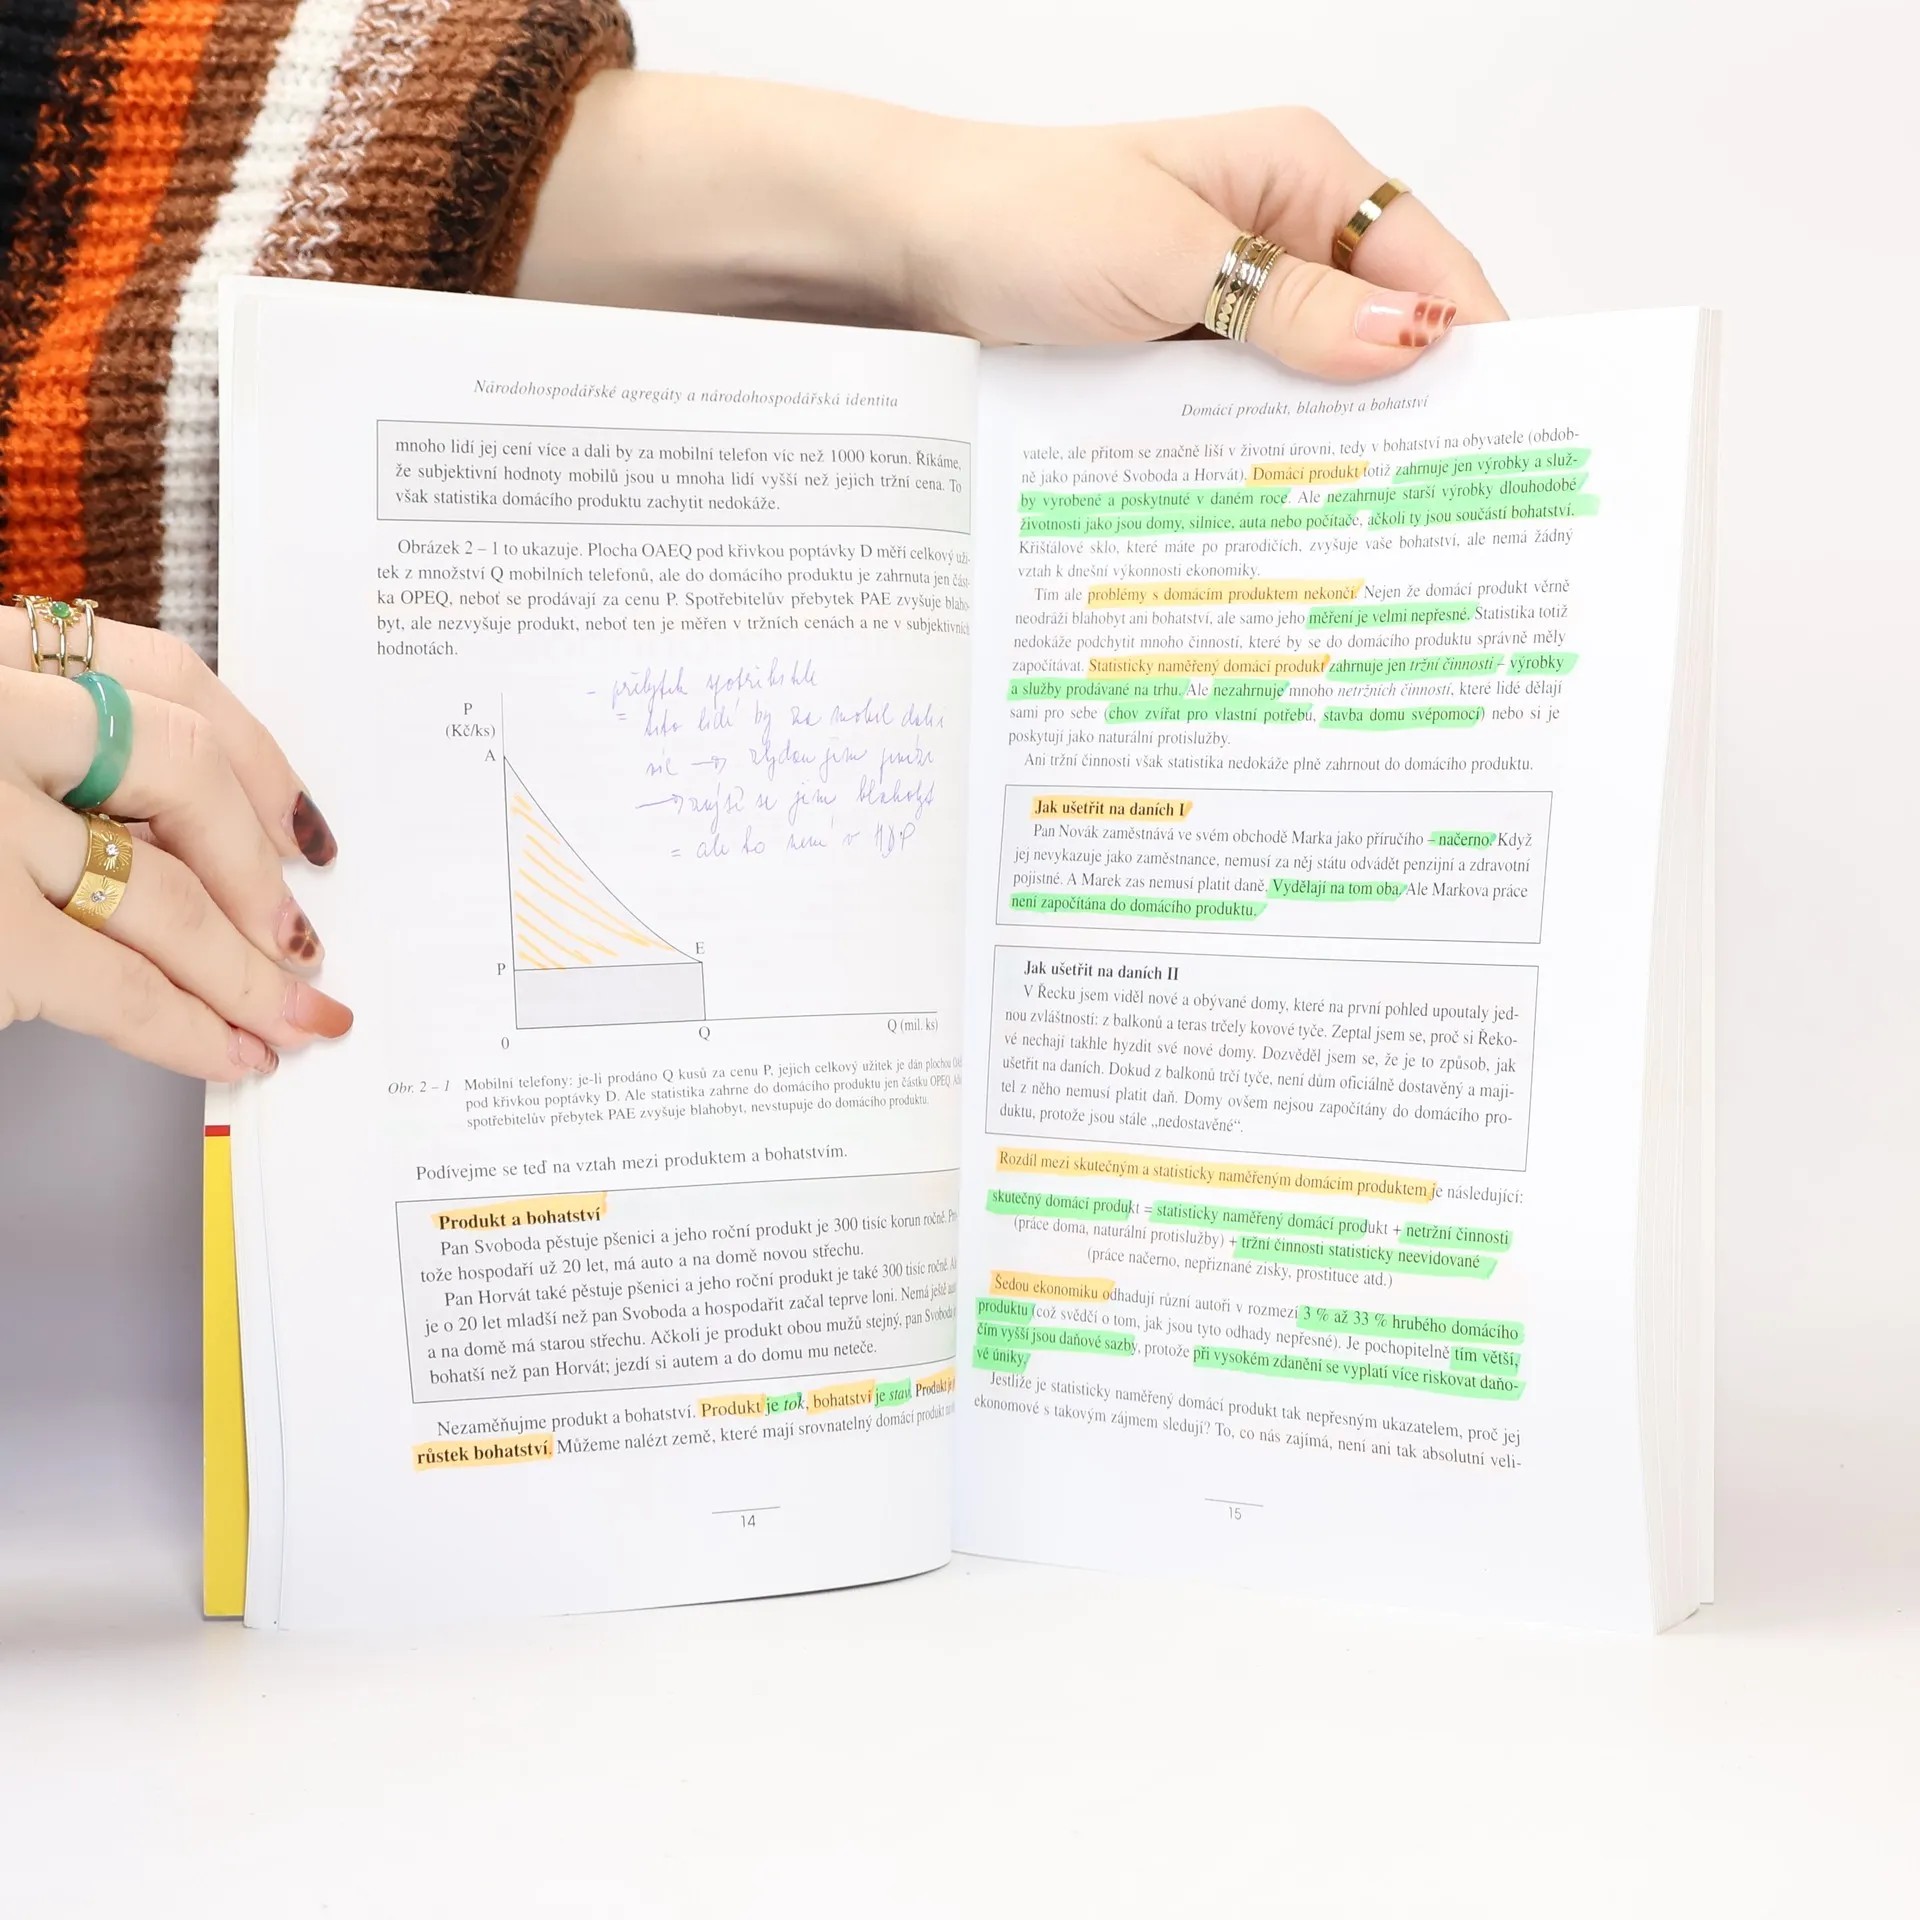 Národohospodářské agregáty a národohospodářská identita
mnoho lidí jej cení více a dali by za mobilní telefon víc než 1000 korun. Říkáme,
že subjektivní hodnoty mobilů jsou u mnoha lidí vyšší než jejich tržní cena. To
však statistika domácího produktu zachytit nedokáže.
Obrázek 2 – 1 to ukazuje. Plocha OAEQ pod křivkou poptávky D měří celkový uži-
tek z množství Q mobilních telefonů, ale do domácího produktu je zahrnuta jen část-
ka OPEQ, neboť se prodávají za cenu P. Spotřebitelův přebytek PAE zvyšuje blaho-
byt, ale nezvyšuje produkt, neboť ten je měřen v tržních cenách a ne v subjektivních
hodnotách.
P
(Kč/ks)
A
- přebytek
= tito lidi by za mobil dali
víc → zbydou jim peníze
→ zvýší se jim blahobyt
= ale to není v HDP
E
P
0
Q
Q (mil. ks)
Obr. 2 – 1 Mobilní telefony: je-li prodáno Q kusů za cenu P, jejich celkový užitek je dán plochou
pod křivkou poptávky D. Ale statistika zahrne do domácího produktu jen částku OPEQ.
spotřebitelův přebytek PAE zvyšuje blahobyt, nevstupuje do domácího produktu.
Podívejme se teď na vztah mezi produktem a bohatstvím.
Produkt a bohatství
Pan Svoboda pěstuje pšenici a jeho roční produkt je 300 tisíc korun ročně.
tože hospodaří už 20 let, má auto a na domě novou střechu.
Pan Horvát také pěstuje pšenici a jeho roční produkt je také 300 tisíc ročně.
je o 20 let mladší než pan Svoboda a hospodařit začal teprve loni. Nemá ještě
a na domě má starou střechu. Ačkoli je produkt obou mužů stejný, pan Svoboda
bohatší než pan Horvát; jezdí si autem a do domu mu neteče.
Nezaměňujme produkt a bohatství. Produkt je tok, bohatství je stav. Produkt je
růstek bohatství. Můžeme nalézt země, které mají srovnatelný domácí produkt
14
Domácí produkt, blahobyt a bohatství
vatele, ale přitom se značně liší v životní úrovni, tedy v bohatství na obyvatele (obdob-
ně jako pánové Svoboda a Horvát). Domácí produkt totiž zahrnuje jen výrobky a služ-
by vyrobené a poskytnuté v daném roce. Ale nezahrnuje starší výrobky dlouhodobé
životnosti jako jsou domy, silnice, auta nebo počítače, ačkoli ty jsou součástí bohatství.
Křišťálové sklo, které máte po prarodičích, zvyšuje vaše bohatství, ale nemá žádný
vztah k dnešní výkonnosti ekonomiky.
Tím ale problémy s domácím produktem nekončí. Nejen že domácí produkt věrně
neodráží blahobyt ani bohatství, ale samo jeho měření je velmi nepřesné. Statistika totiž
nedokáže podchytit mnoho činností, které by se do domácího produktu správně měly
započítávat. Statisticky naměřený domácí produkt zahrnuje jen tržní činnosti – výrobky
a služby prodávané na trhu. Ale nezahrnuje mnoho netržních činností, které lidé dělají
sami pro sebe (chov zvířat pro vlastní potřebu, stavba domu svépomocí) nebo si je
poskytují jako naturální protislužby.
Ani tržní činnosti však statistika nedokáže plně zahrnout do domácího produktu.
Jak ušetřit na daních I
Pan Novák zaměstnává ve svém obchodě Marka jako příručího – načerno. Když
jej nevykazuje jako zaměstnance, nemusí za něj státu odvádět penzijní a zdravotní
pojistné. A Marek zas nemusí platit daně. Vydělají na tom oba. Ale Markova práce
není započítána do domácího produktu.
Jak ušetřit na daních II
V Řecku jsem viděl nové a obývané domy, které na první pohled upoutaly jed-
nou zvláštností: z balkonů a teras trčely kovové tyče. Zeptal jsem se, proč si Řeko-
vé nechají takhle hyzdit své nové domy. Dozvěděl jsem se, že je to způsob, jak
ušetřit na daních. Dokud z balkonů trčí tyče, není dům oficiálně dostavěný a maji-
tel z něho nemusí platit daň. Domy ovšem nejsou započítány do domácího pro-
duktu, protože jsou stále „nedostavěné“.
Rozdíl mezi skutečným a statisticky naměřeným domácím produktem je následující:
skutečný domácí produkt = statisticky naměřený domácí produkt + netržní činnosti
(práce doma, naturální protislužby) + tržní činnosti statisticky neevidované
(práce načerno, nepřiznané zisky, prostituce atd.)
Šedou ekonomiku odhadují různí autoři v rozmezí 3 % až 33 % hrubého domácího
produktu (což svědčí o tom, jak jsou tyto odhady nepřesné). Je pochopitelně tím větší,
čím vyšší jsou daňové sazby, protože při vysokém zdanění se vyplatí více riskovat daňo-
vé úniky.
Jestliže je statisticky naměřený domácí produkt tak nepřesným ukazatelem, proč jej
ekonomové s takovým zájmem sledují? To, co nás zajímá, není ani tak absolutní veli-
15